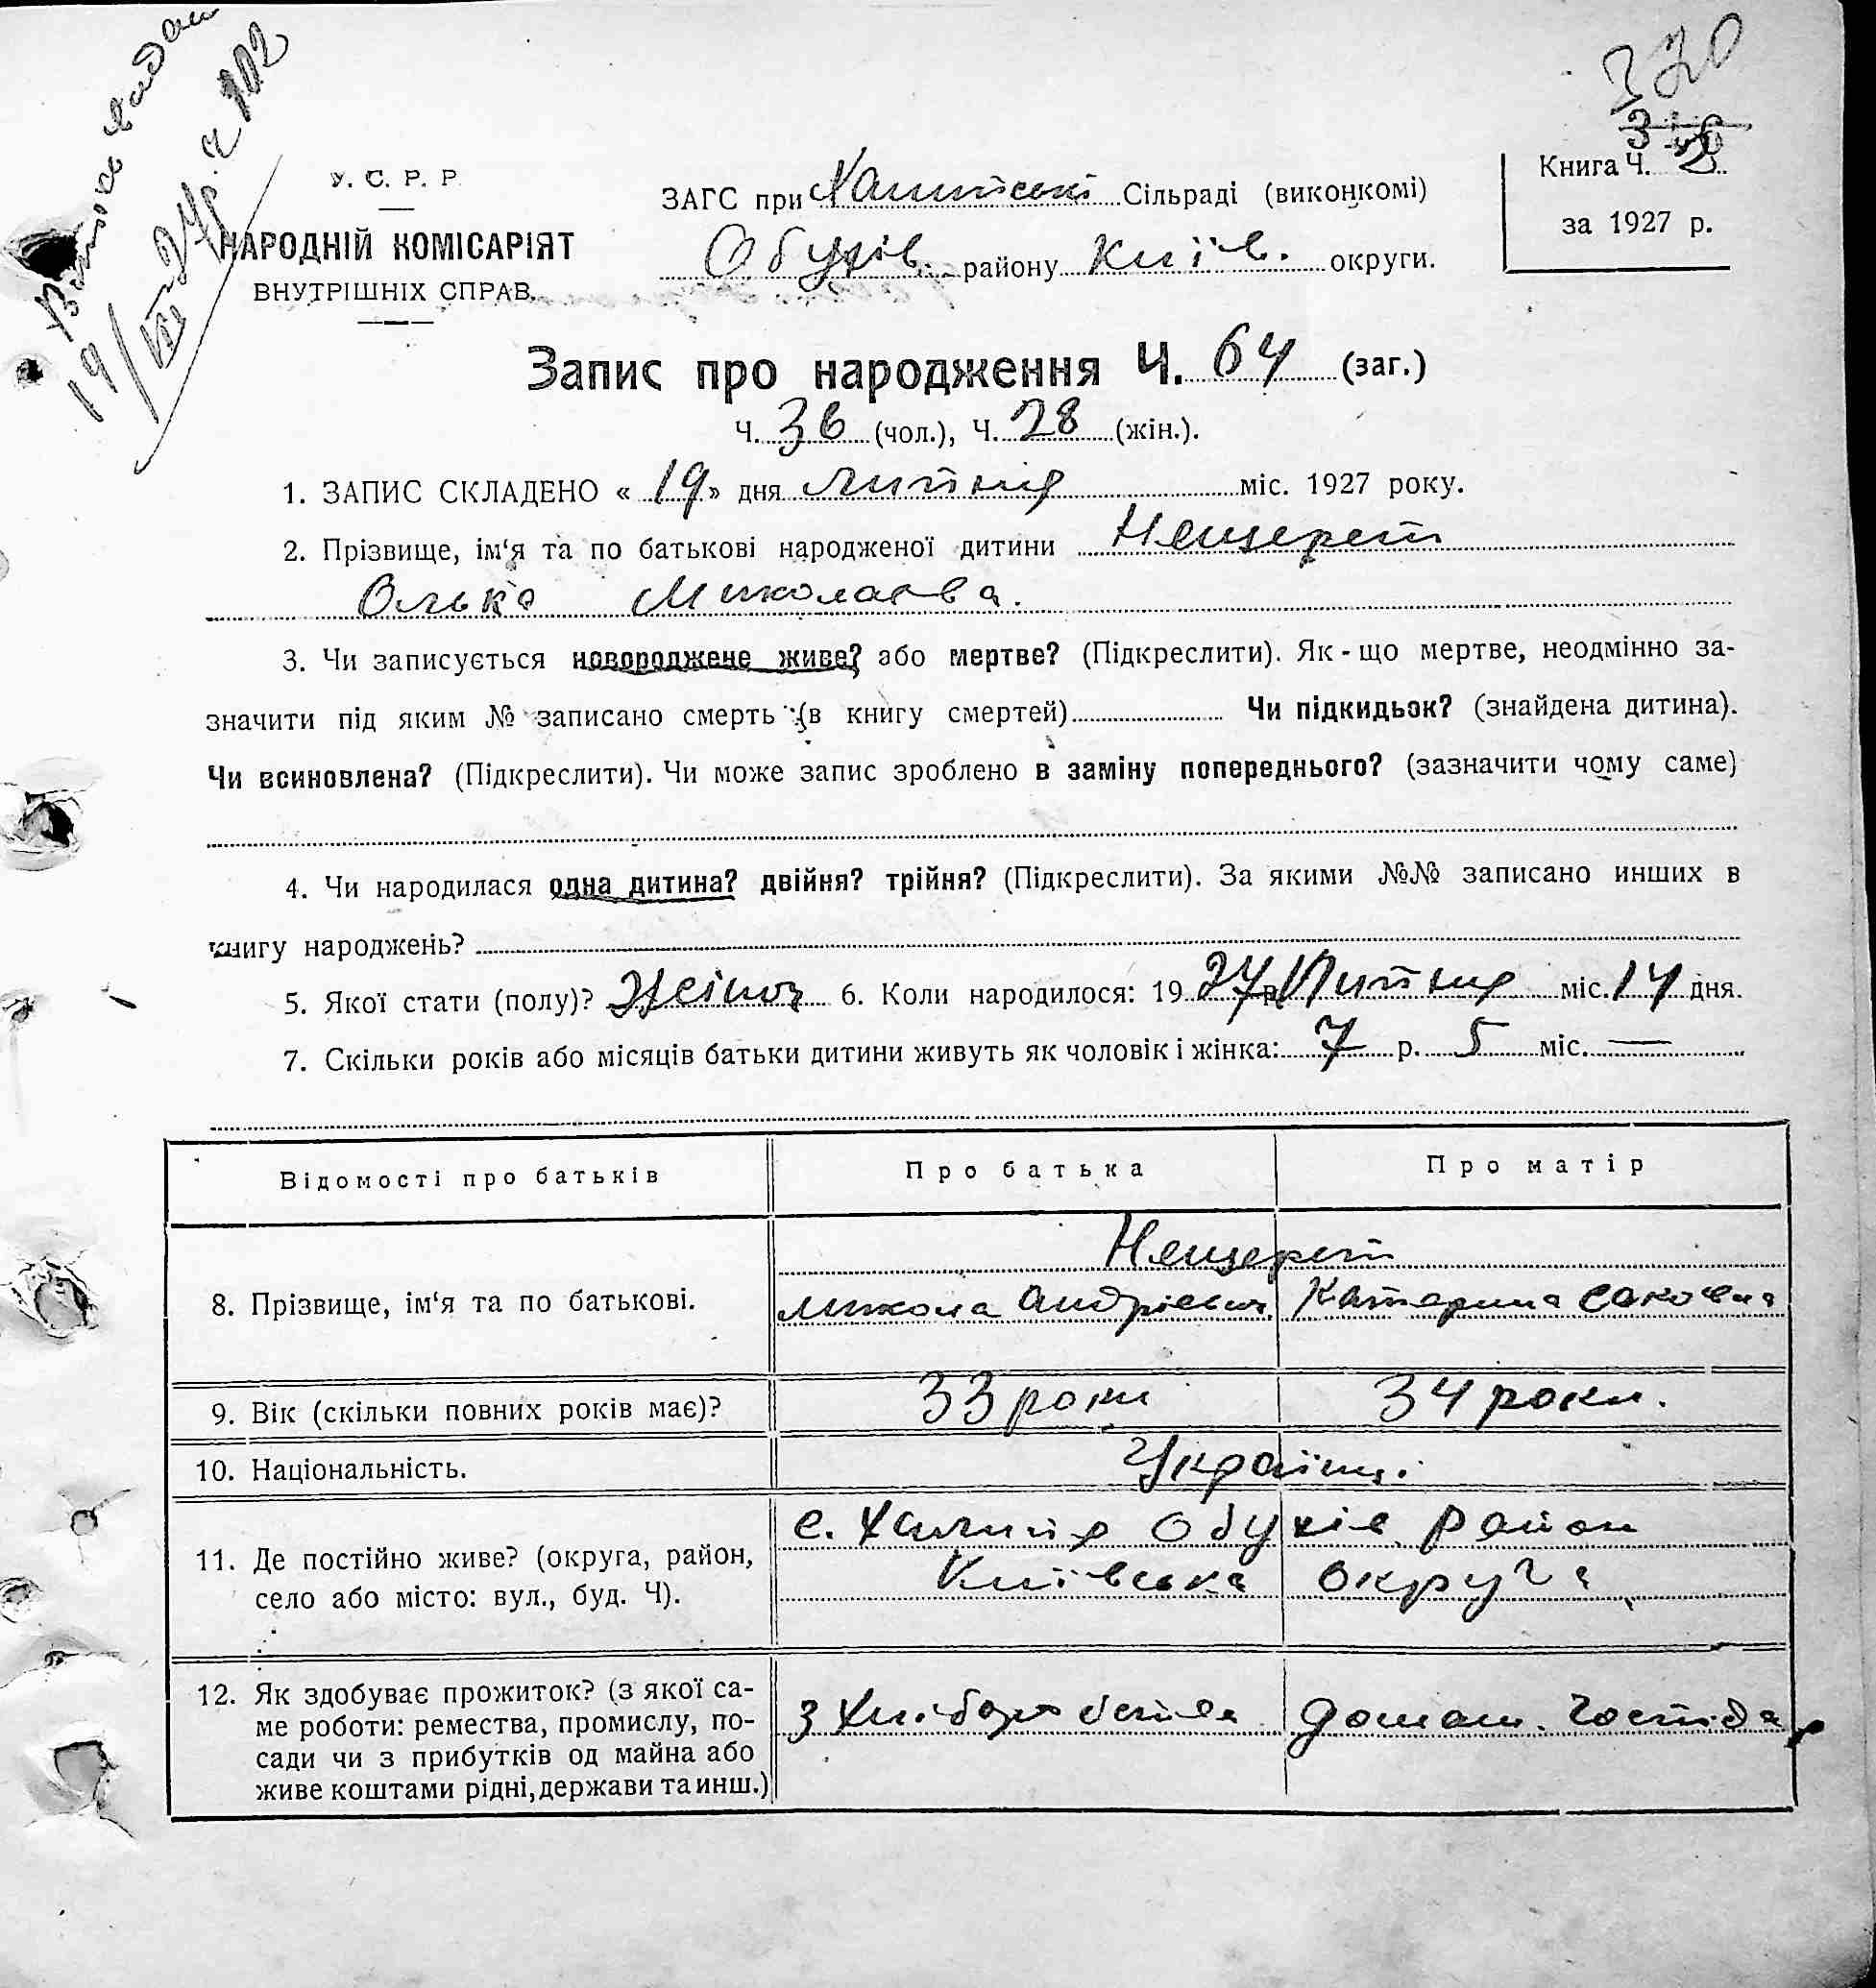 Витяг видан
19/VII 27р. ч 102
330
318
У. С. Р. Р.
НАРОДНІЙ КОМІСАРІЯТ
ВНУТРІШНІХ СПРАВ.
ЗАГС при Халипській Сільраді (виконкомі)
Обухів. району Київ. округи.
Книга Ч. 2
за 1927 р.
Запис про народження Ч. 64 (заг.)
Ч. 36 (чол.), Ч. 28 (жін.).
1. ЗАПИС СКЛАДЕНО « 19 » дня липня міс. 1927 року.
2. Прізвище, ім‘я та по батькові народженої дитини Нещерет
Олька Миколаєва.
3. Чи записується новороджене живе? або мертве? (Підкреслити). Як-що мертве, неодмінно за-
значити під яким № записано смерть (в книгу смертей) Чи підкидьок? (знайдена дитина).
Чи всиновлена? (Підкреслити). Чи може запис зроблено в заміну попереднього? (зазначити чому саме)
4. Чи народилася одна дитина? двійня? трійня? (Підкреслити). За якими №№ записано инших в
книгу народжень?
5. Якої стати (полу)? Жіноч 6. Коли народилося: 19 27 р. Липня міс. 14 дня.
7. Скільки років або місяців батьки дитини живуть як чоловік і жінка: 7 р. 5 міс. —
Відомості про батьків Про батька Про матір
8. Прізвище, ім‘я та по батькові. Нещерет
Микола Андрієвич Катерина Саковна
9. Вік (скільки повних років має)? 33 роки 34 роки.
10. Національність. Українці
11. Де постійно живе? (округа, район,
село або місто: вул., буд. Ч).
с. Халипя Обухів район
Київська округа
12. Як здобуває прожиток? (з якої са-
ме роботи: ремества, промислу, по-
сади чи з прибутків од майна або
живе коштами рідні, держави та инш.)
з Хліборобства Домаш. Господар